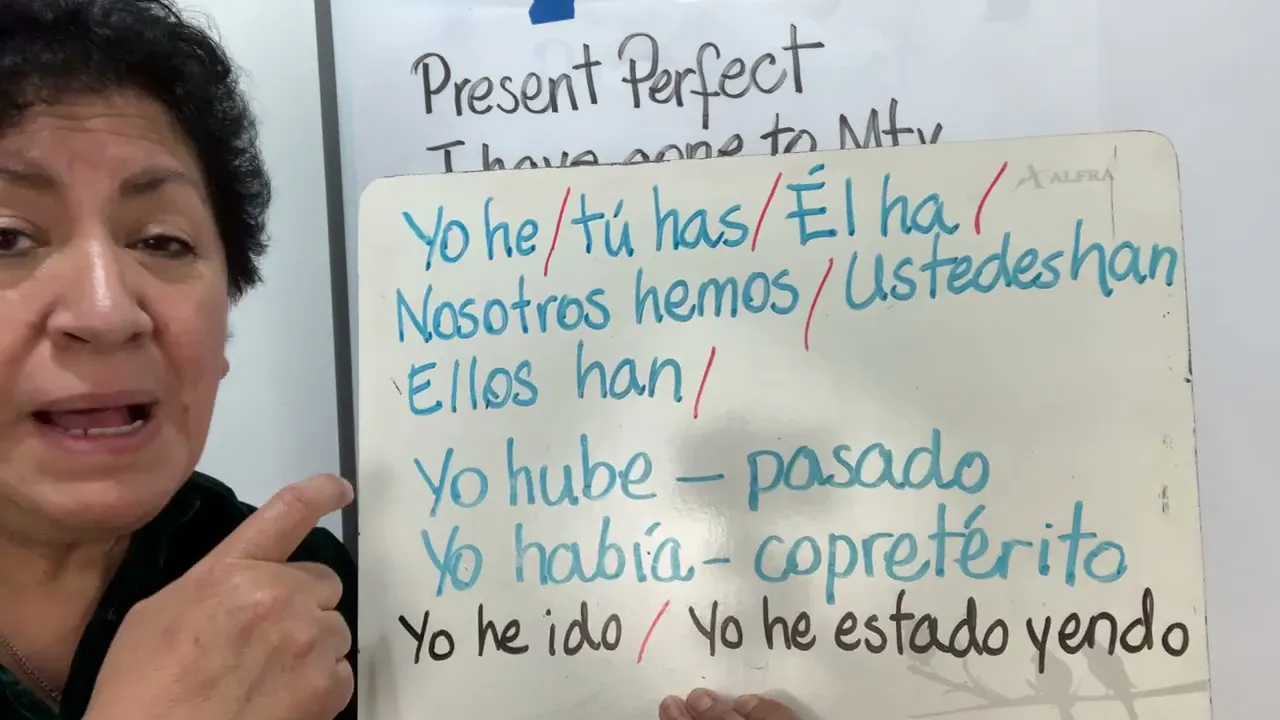 Present Perfect
I have gone to Mty
ALFRA
Yo he / tú has / Él ha /
Nosotros hemos / Ustedes han
Ellos han /
Yo hube – pasado
Yo había – copretérito
Yo he ido / Yo he estado yendo